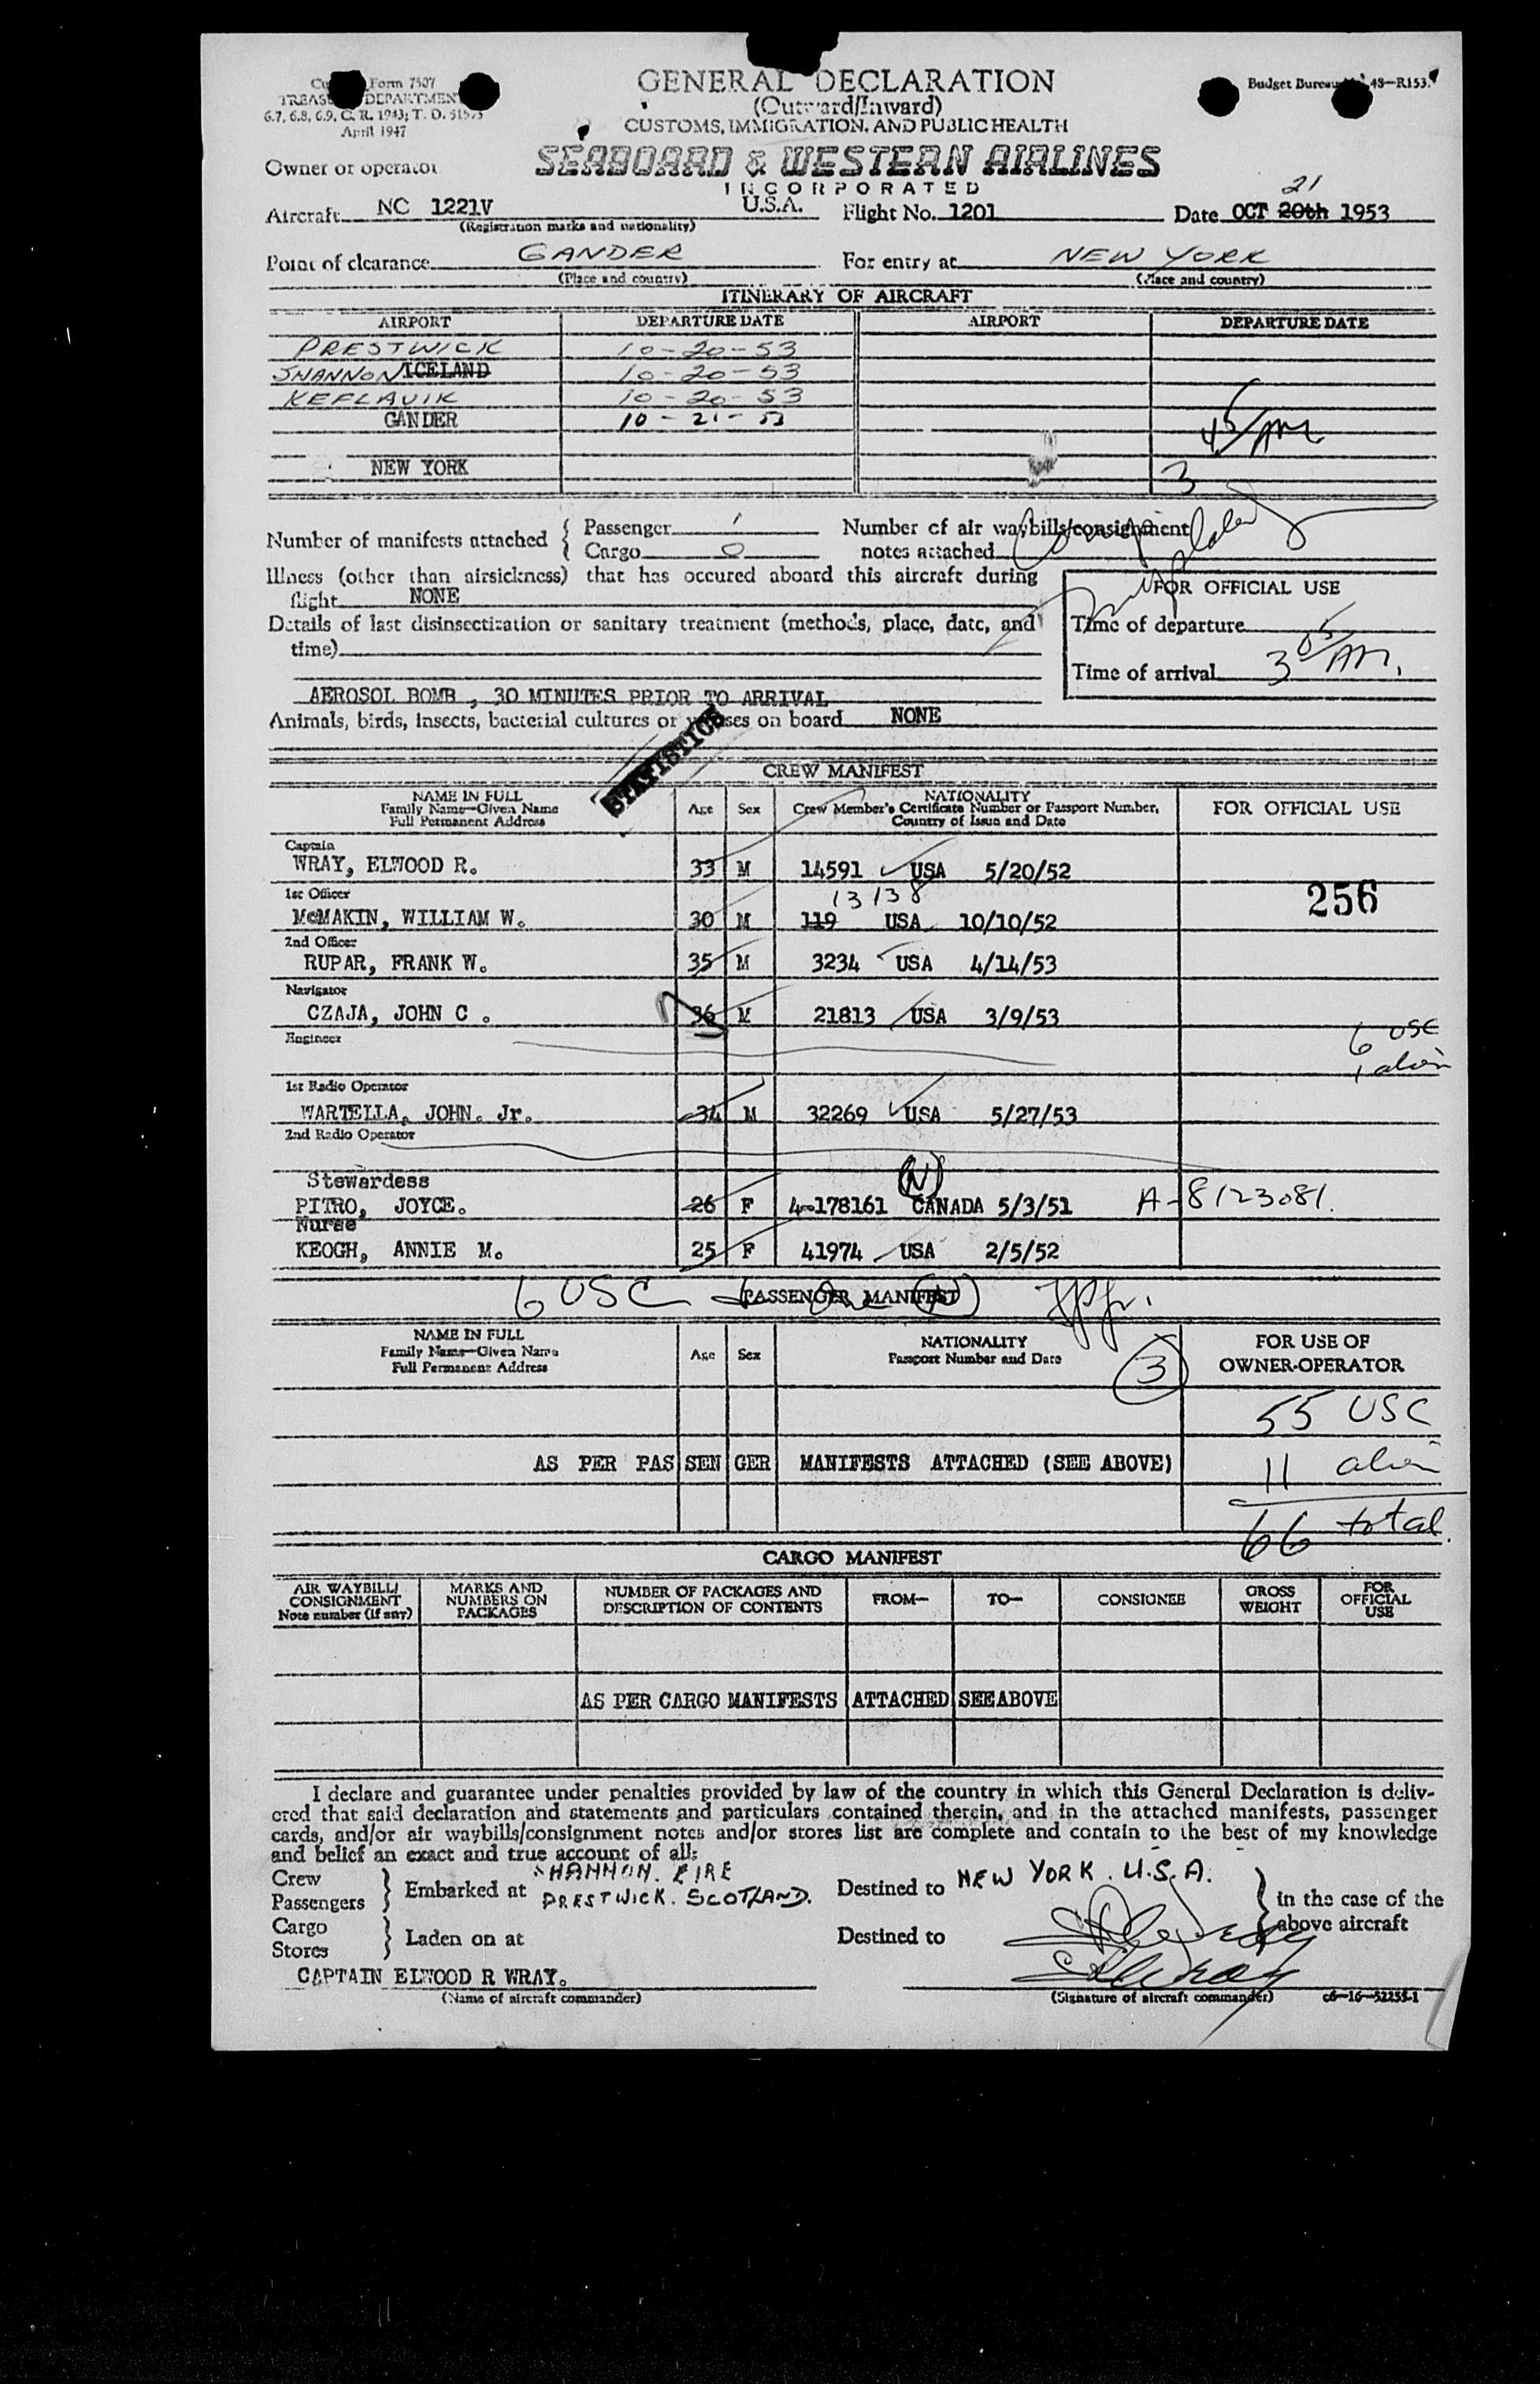 Form 7507
TREASURY DEPARTMENT
6.7, 6.8, 6.9, C. R. 1943; T. D. 51573
April 1947
GENERAL DECLARATION
(Outward/Inward)
CUSTOMS, IMMIGRATION, AND PUBLIC HEALTH
Budget Bureau 48-R153.
Owner or operator SEABOARD & WESTERN AIRLINES
INCORPORATED
21
Aircraft NC 1221V U.S.A. Flight No. 1201 Date OCT 20th 1953
(Registration marks and nationality)
Point of clearance GANDER For entry at NEW YORK
(Place and country) (Place and country)
ITINERARY OF AIRCRAFT
AIRPORT DEPARTURE DATE AIRPORT DEPARTURE DATE
PRESTWICK 10-20-53
SHANNON ICELAND 10-20-53
KEFLAVIK 10-20-53
GANDER 10-21-53
NEW YORK
Number of manifests attached { Passenger 1 Number of air waybills/consignment
Cargo 0 notes attached
Illness (other than airsickness) that has occured aboard this aircraft during
flight NONE
FOR OFFICIAL USE
Details of last disinsectization or sanitary treatment (methods, place, date, and
time)
Time of departure
Time of arrival 3 05/AM.
AEROSOL BOMB , 30 MINUTES PRIOR TO ARRIVAL
Animals, birds, insects, bacterial cultures or viruses on board NONE
STATISTICS
CREW MANIFEST
NAME IN FULL
Family Name—Given Name
Full Permanent Address
Age Sex
NATIONALITY
Crew Member's Certificate Number or Passport Number,
Country of Issue and Date
FOR OFFICIAL USE
Captain
WRAY, ELWOOD R. 33 M 14591 USA 5/20/52
1st Officer 13138
McMAKIN, WILLIAM W. 30 M 119 USA 10/10/52
256
2nd Officer
RUPAR, FRANK W. 35 M 3234 USA 4/14/53
Navigator
CZAJA, JOHN C . 36 M 21813 USA 3/9/53
Engineer
6 USC
1 alien
1st Radio Operator
WARTELLA, JOHN. Jr. 34 M 32269 USA 5/27/53
2nd Radio Operator
Stewardess (N)
PITRO, JOYCE. 26 F 4-178161 CANADA 5/3/51 A-8123081.
Nurse
KEOGH, ANNIE M. 25 F 41974 USA 2/5/52
6 USC
PASSENGER MANIFEST
NAME IN FULL
Family Name—Given Name
Full Permanent Address
Age Sex
NATIONALITY
Passport Number and Date
3
FOR USE OF
OWNER-OPERATOR
55 USC
AS PER PASSENGER MANIFESTS ATTACHED (SEE ABOVE) 11 alien
66 total
CARGO MANIFEST
AIR WAYBILL/
CONSIGNMENT
Note number (if any)
MARKS AND
NUMBERS ON
PACKAGES
NUMBER OF PACKAGES AND
DESCRIPTION OF CONTENTS
FROM— TO— CONSIGNEE
GROSS
WEIGHT
FOR
OFFICIAL
USE
AS PER CARGO MANIFESTS ATTACHED SEE ABOVE
I declare and guarantee under penalties provided by law of the country in which this General Declaration is deliv-
ered that said declaration and statements and particulars contained therein, and in the attached manifests, passenger
cards, and/or air waybills/consignment notes and/or stores list are complete and contain to the best of my knowledge
and belief an exact and true account of all:
Crew SHANNON. EIRE
Passengers } Embarked at PRESTWICK. SCOTLAND. Destined to NEW YORK. U.S.A. } in the case of the
Cargo above aircraft
Stores } Laden on at Destined to
CAPTAIN ELWOOD R WRAY.
(Name of aircraft commander) (Signature of aircraft commander) c6—16—52255-1